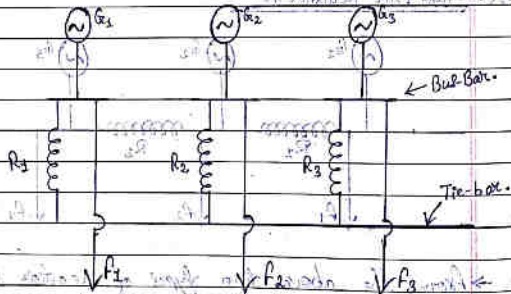 G1 G2 G3
← Bus-Bar.
R1 R2 R3
Tie-bar.
F1 F2 F3